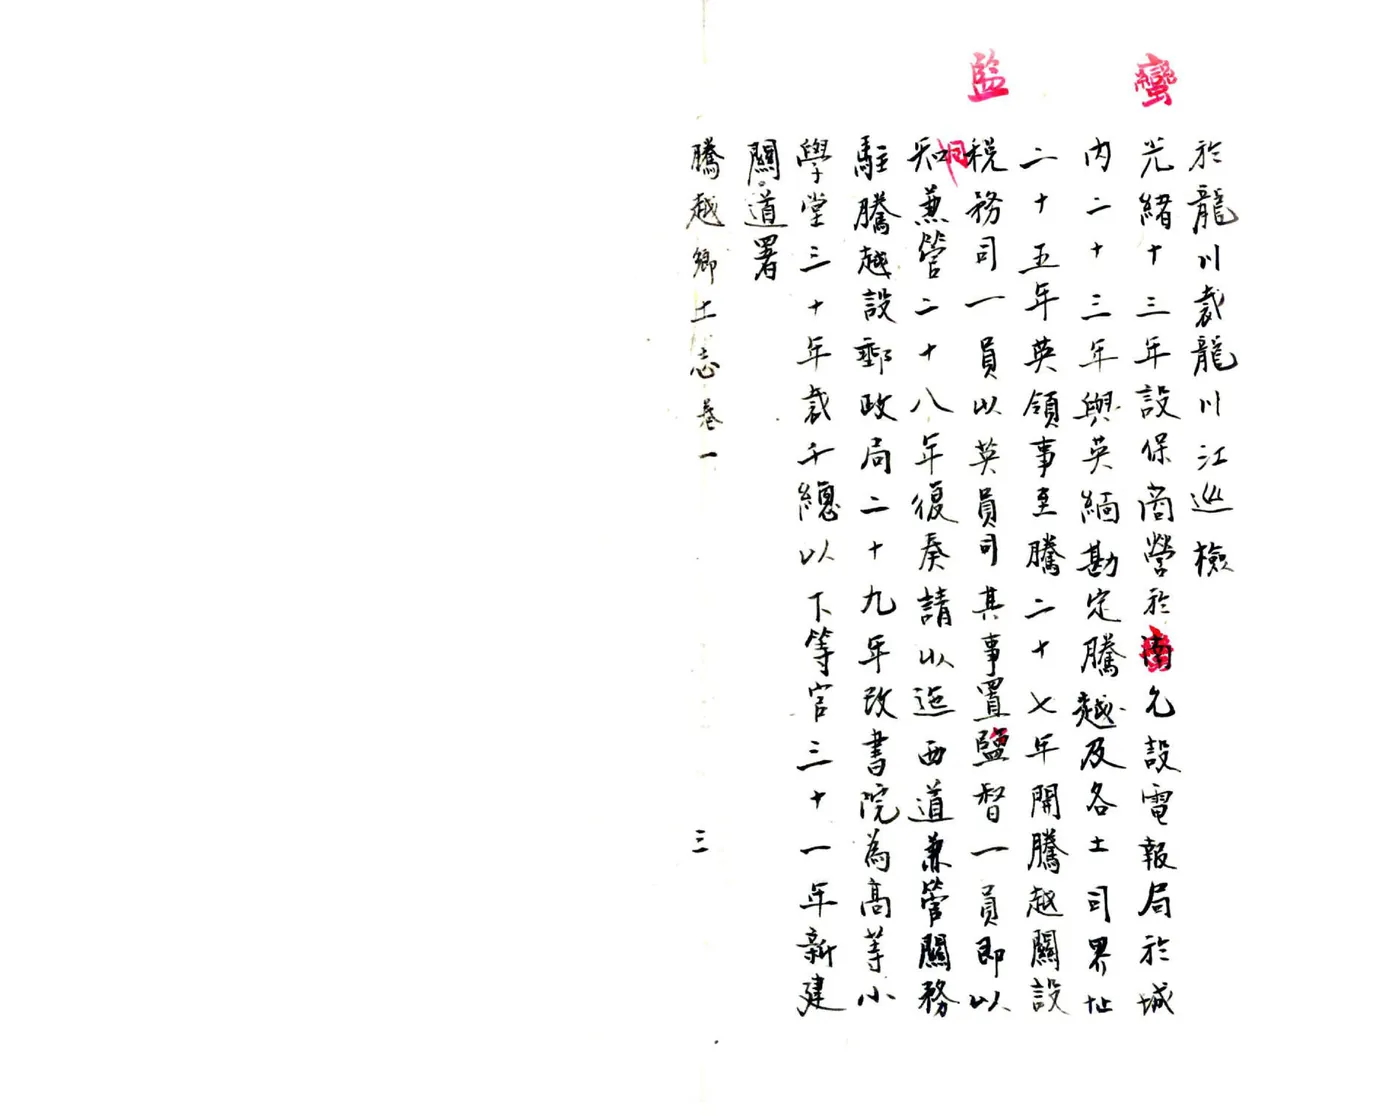 蠻
監
於龍川裁龍川江巡檢
光緒十三年設保商營於蠻允設電報局於城
內二十三年與英緬勘定騰越及各土司界址
二十五年英領事至騰二十七年開騰越關設
稅務司一員以英員司其事置監督一員即以
同知兼管二十八年復奏請以迤西道兼管關務
駐騰越設郵政局二十九年改書院為高等小
學堂三十年裁千總以下等官三十一年新建
關道署
騰越鄉土志 卷一 三